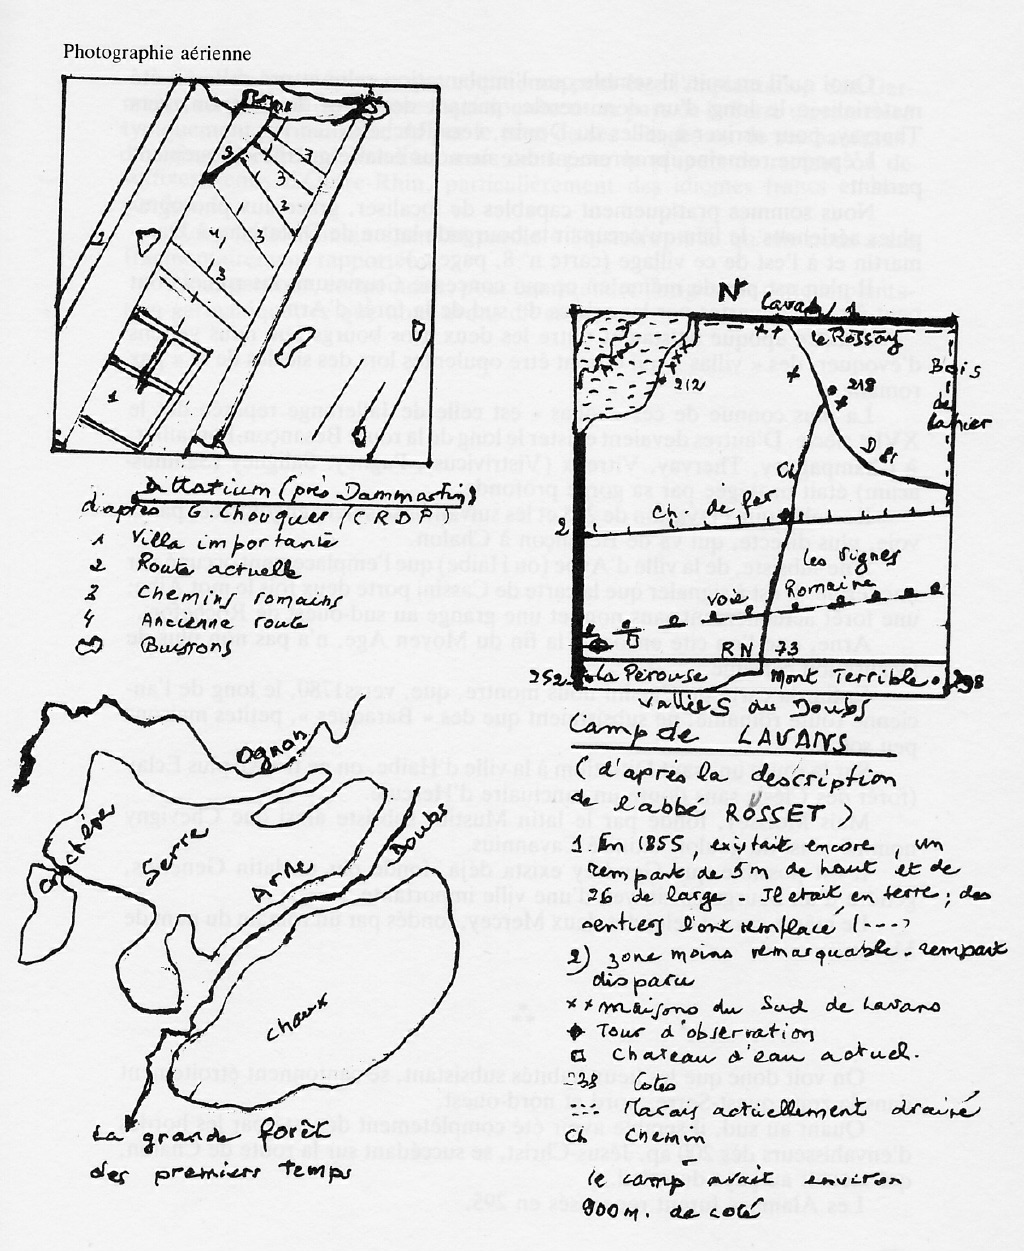 Photographie aérienne
3
3
3
2
3
4
3
2
1
Dittatium (près Dammartin)
d'après G Chouquer (CRDP)
1 Villa importante
2 Route actuelle
3 Chemins romains
4 Ancienne route
Buissons
N
Lavans 1
le Rossay
Bois
212
218
Ch
D 81
2
Ch de fer
les Vignes
voie Romaine
RN 73
252
La Pérouse
Mont Terrible
298
Vallée du Doubs
Camp de LAVANS
(d'après la description
de l'abbé ROSSET
1. En 1855, existait encore, un
rempart de 5 m de haut et de
26 de large. Il était en terre; des
sentiers l'ont remplacé (----)
2) zone moins remarquable. rempart
disparu
x + maisons du Sud de Lavans
Tour d'observation
Chateau d'eau actuel.
238 Cotes
Marais actuellement drainé
Ch Chemin
le camp avait environ
900 m. de coté
Ognon
chêne
Serre
Arne
Doubs
chaux
La grande forêt
des premiers temps